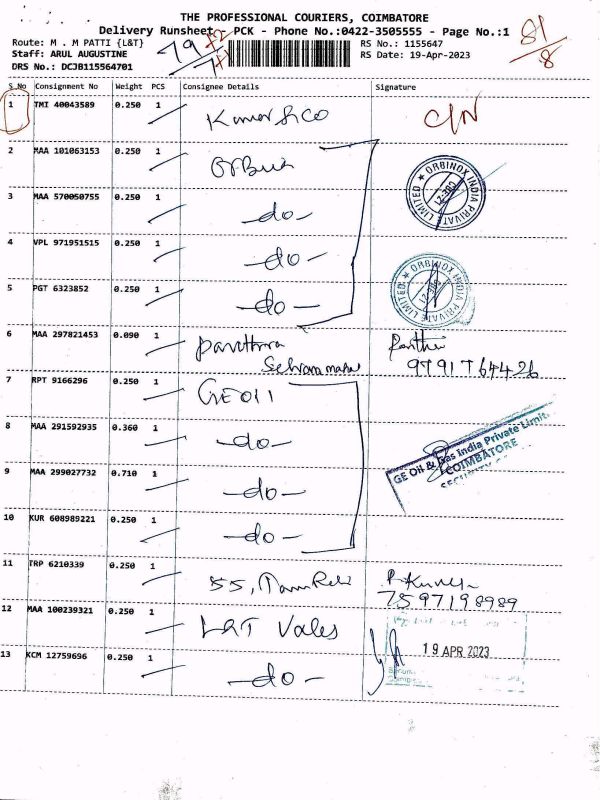 THE PROFESSIONAL COURIERS, COIMBATORE
Delivery Runsheet - PCK - Phone No.:0422-3505555 - Page No.:1
Route: M . M PATTI {L&T}
RS No.: 1155647
Staff: ARUL AUGUSTINE
RS Date: 19-Apr-2023
DRS No.: DCJB115564701
79
81/8
S No Consignment No Weight PCS Consignee Details Signature
1 TMI 40043589 0.250 1 Kumar & CO
2 MAA 101063153 0.250 1
ORBINOX INDIA PRIVATE LIMITED
CBE-21
3 MAA 570050755 0.250 1 -do-
4 VPL 971951515 0.250 1 -do-
ORBINOX INDIA PRIVATE LIMITED
CBE-21
5 PGT 6323852 0.250 1 -do-
6 MAA 297821453 0.090 1
9791764426
7 RPT 9166296 0.250 1 GE Oil
8 MAA 291592935 0.360 1 -do-
GE Oil & Gas India Private Limit
COIMBATORE
9 MAA 299027732 0.710 1 -do-
10 KUR 608989221 0.250 1 -do-
11 TRP 6210339 0.250 1 55,
7597198989
12 MAA 100239321 0.250 1 L&T Valves
19 APR 2023
13 KCM 12759696 0.250 1 -do-